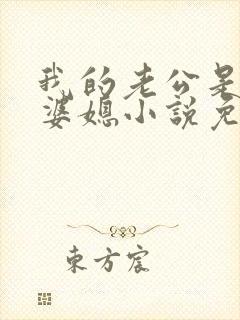 我的老公是
婆媳小說免
東方宸